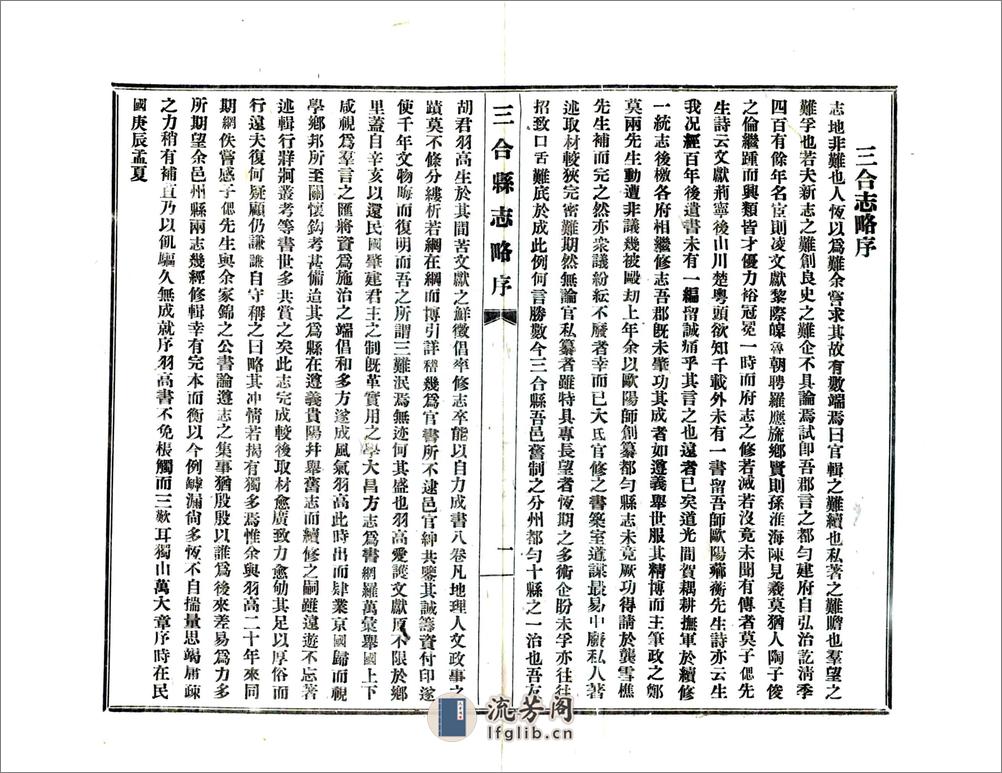 三合志略序
志地非難也人恆以爲難余嘗求其故有數端焉曰官輯之難續也私著之難贍也羣望之
難孚也若夫新志之難創良史之難企不具論焉試即吾郡言之都勻建府自弘治訖淸季
四百有餘年名宦則凌文獻黎際皥魯朝聘羅應旒鄉賢則孫淮海陳見羲莫猶人陶子俊
之倫繼踵而興類皆才優力裕冠冕一時而府志之修若滅若沒竟未聞有傳者莫子偲先
生詩云文獻荊寧後山川楚粵頭欲知千載外未有一書留吾師歐陽蘅先生詩亦云生
我况經百年後遺書未有一編留誠痛乎其言之也遠者已矣道光間賀耦耕撫軍於續修
一統志後檄各府相繼修志吾郡旣未肇功其成者如遵義舉世服其精博而主筆政之鄭
莫兩先生動遭非議幾被毆刼上年余以歐陽師創纂都勻縣志未竟厥功得請於龔雪樵
先生補而完之然亦衆議紛紜不廢者幸而已大氐官修之書築室道謀最易中廢私人著
述取材較狹完密難期然無論官私纂者雖特具專長望者恆期之多術企盼未孚亦往往
招致口舌難底於成此例何言勝數今三合縣吾邑舊制之分州都勻十縣之一治也吾友
三合縣志略序
一
胡君羽高生於其間苦文獻之鮮徵倡率修志卒能以自力成書八卷凡地理人文政事之
蹟莫不條分縷析若網在綱而博引詳稽幾爲官書所不逮邑官紳共鑒其誠籌資付印遂
使千年文物晦而復明而吾之所謂三難泯焉無迹何其盛也羽高愛護文獻原不限於鄉
里蓋自辛亥以還民國肇建君主之制旣革實用之學大昌方志爲書網羅萬彙舉國上下
咸視爲羣言之匯將資爲施治之端倡和多方遂成風氣羽高此時出而肆業京國歸而視
學鄉邦所至關懷鈎考甚備迨其爲縣在遵義貴陽幷舉舊志而續修之嗣雖遠遊不忘著
述輯行牂牁叢考等書世多共賞之矣此志完成較後取材愈廣致力愈勤其足以厚俗而
行遠夫復何疑顧仍謙謙自守稱之曰略其冲情若揭有獨多焉惟余與羽高二十年來同
期網佚嘗感子偲先生與余家錦之公書論遵志之集事猶殷殷以誰爲後來差易爲力多
所期望余邑州縣兩志幾經修輯幸有完本而衡以今例罅漏尙多恆不自揣量思竭庸疎
之力稍有補苴乃以飢驅久無成就序羽高書不免棖觸而三歎耳獨山萬大章序時在民
國庚辰孟夏
流芳阁
lfglib.cn